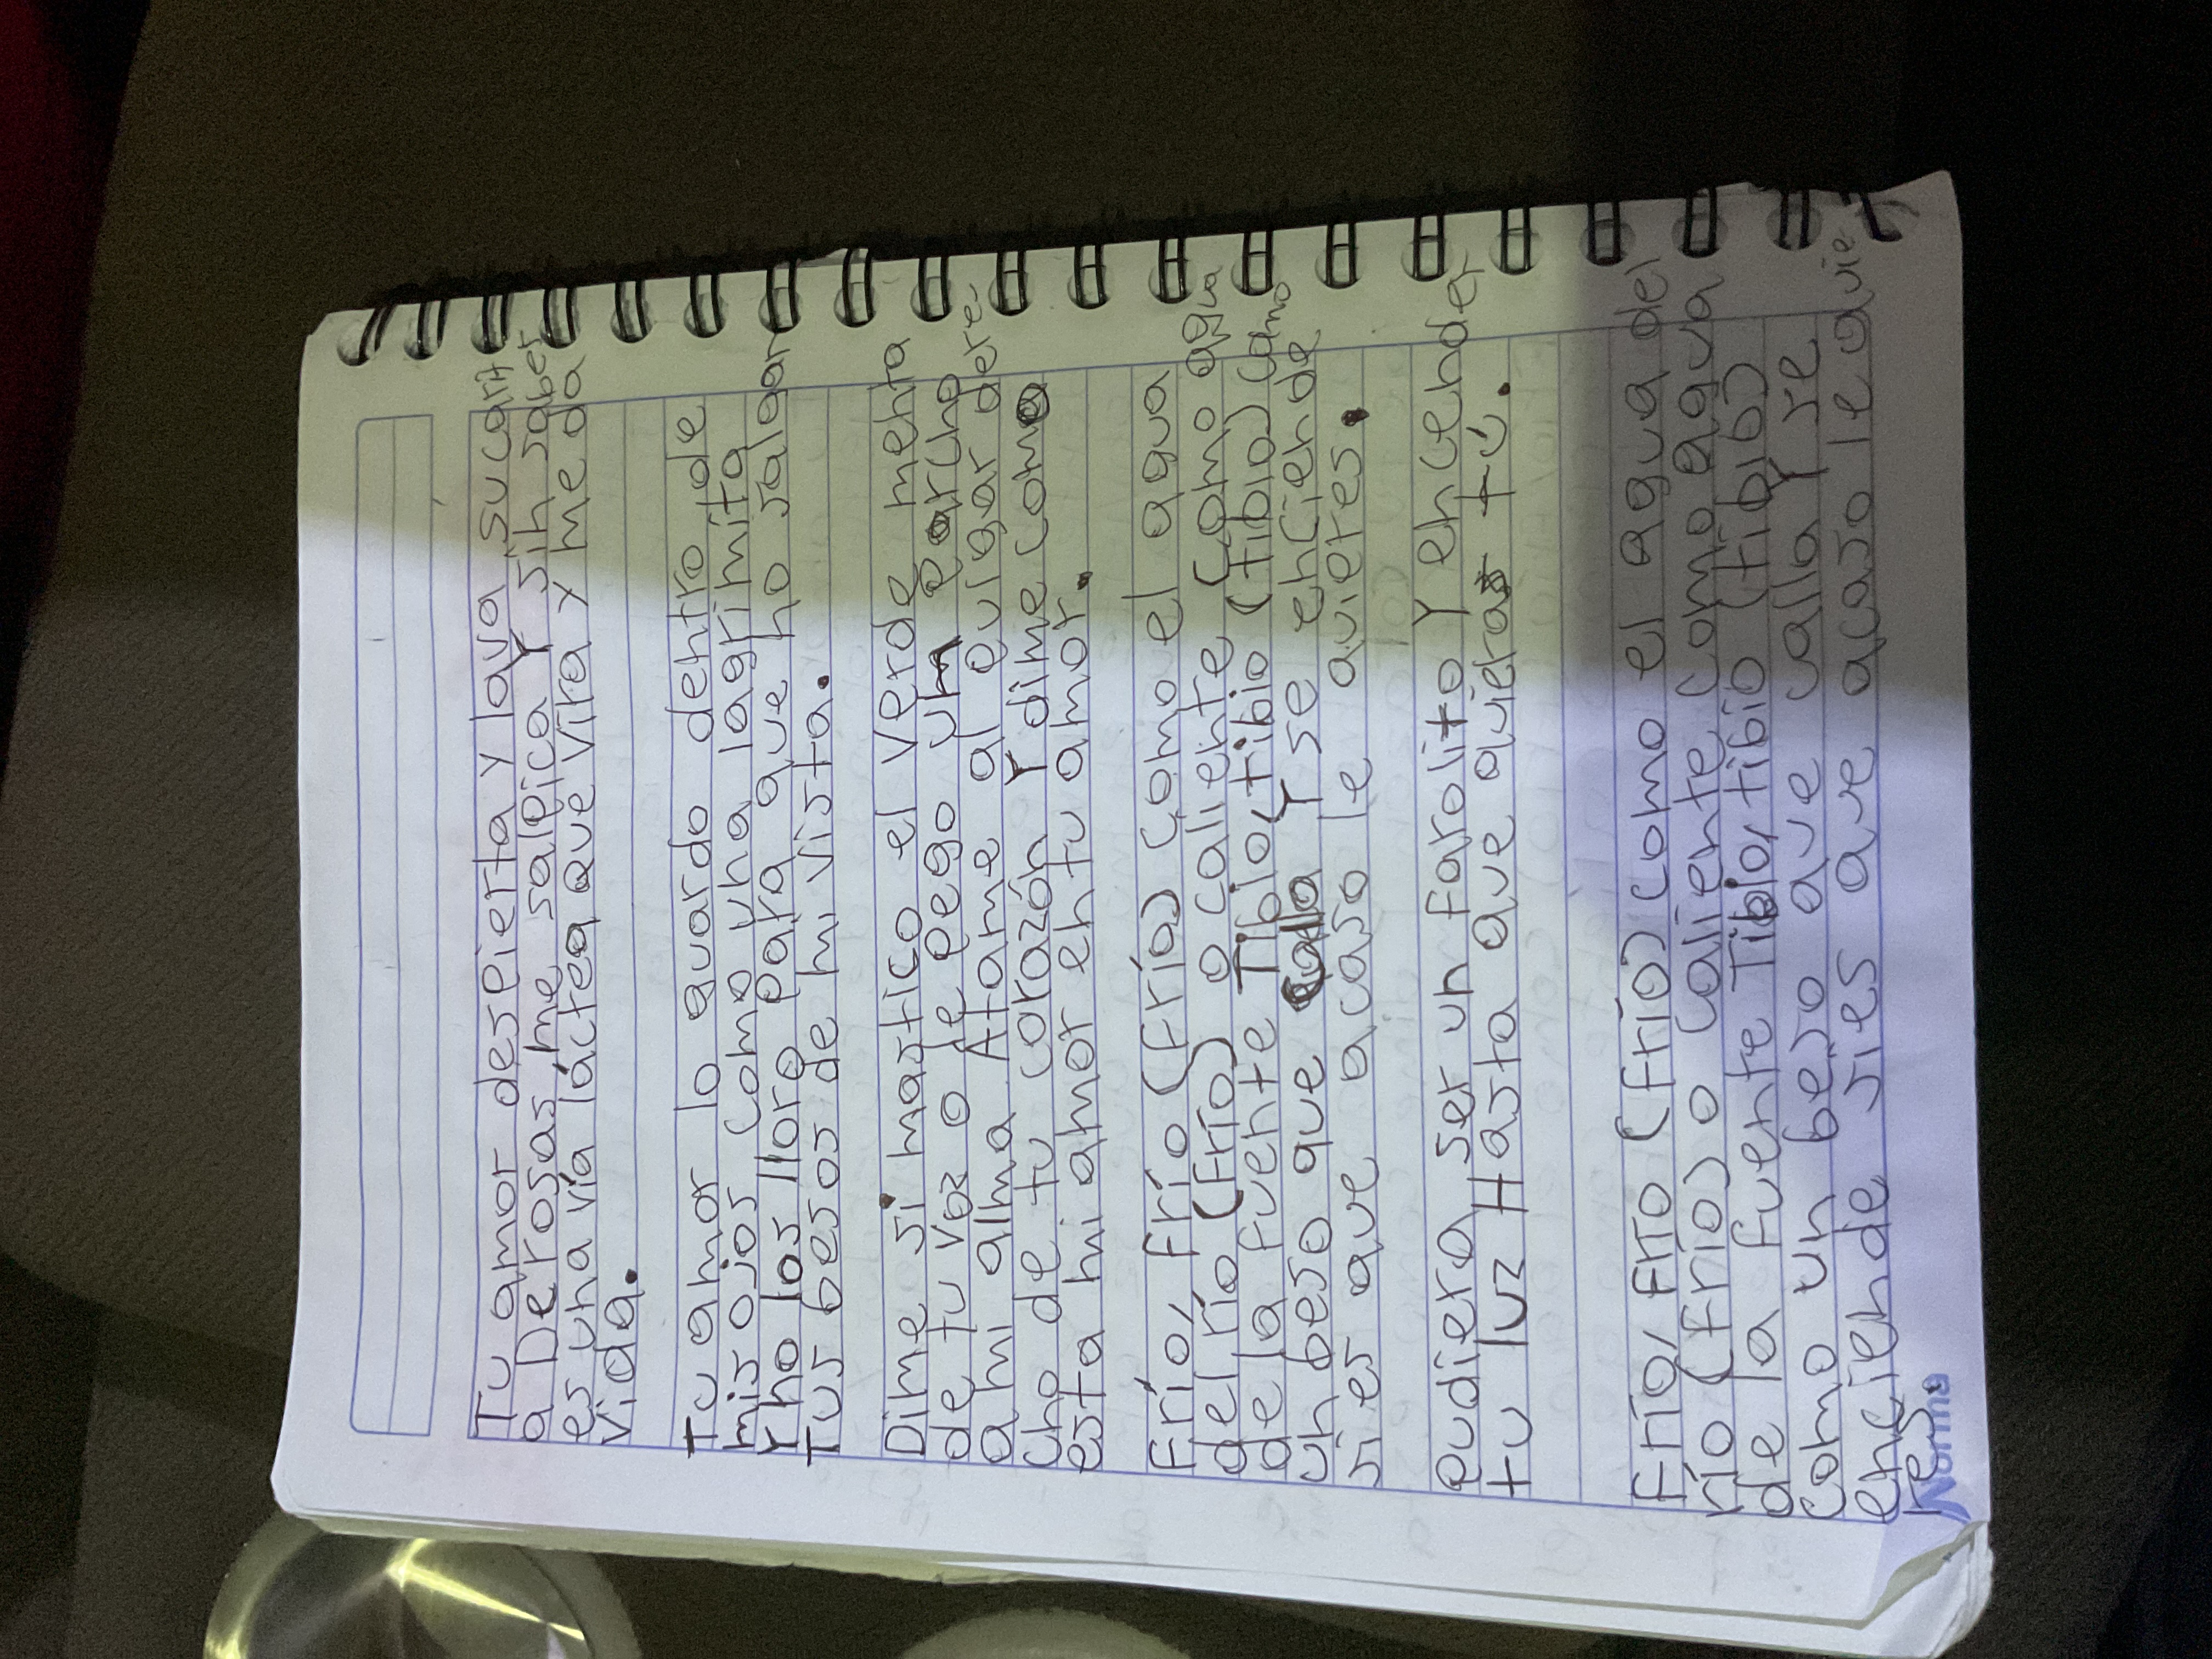 Tu amor despierta y lava su carit
a De rosas me salpica Y sin saber
es una vía láctea Que vira y me da
vida.
Tu amor lo guardo dentro de
mis ojos como una lagrimita
Y no los lloro para que no salgan
Tus besos de mi vista.
Dime si mastico el verde menta
de tu voz o le pego un parcho
a mi alma Atame al pulgar dere
cho de tu corazón Y dime como
esta mi amor en tu amor.
Frío, frío (Fría) como el agua
del río (Frío) o caliente (como agua
de la fuente Tibio, tibio (tibio) como
un beso que calla Y se enciende
si es que acaso le quieres.
Pudiera ser un farolito Y encender
tu luz Hasta que quieras tú.
Frío, frío (frío) como el agua del
río (frío) o caliente como agua
de la fuente Tibio, tibio (tibio)
como un beso que calla Y se
enciende si es que acaso le quie
res.
Norma